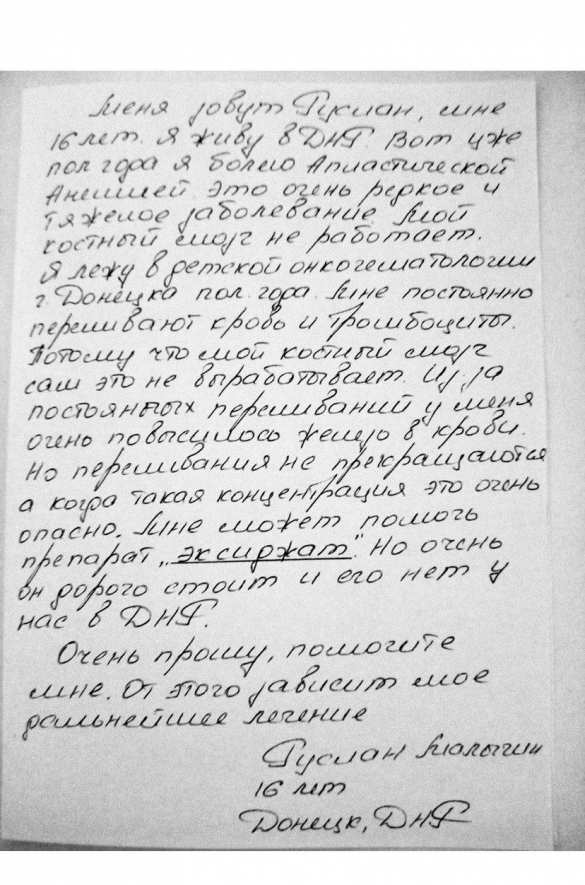 Меня зовут Руслан, мне
16 лет. Я живу в ДНР. Вот уже
пол года я болею Апластической
Анемией. Это очень редкое и
тяжелое заболевание. Мой
костный мозг не работает.
Я лежу в детской онкогематологии
г. Донецка пол года. Мне постоянно
переливают кровь и тромбоциты.
Потому что мой костный мозг
сам это не вырабатывает. Из-за
постоянных переливаний у меня
очень повысилось железо в крови.
Но переливания не прекращаются
а когда такая концентрация это очень
опасно. Мне может помочь
препарат „эксиджат". Но очень
он дорого стоит и его нет у
нас в ДНР.
Очень прошу, помогите
мне. От этого зависит мое
дальнейшее лечение
Руслан Малыгин
16 лет
Донецк, ДНР